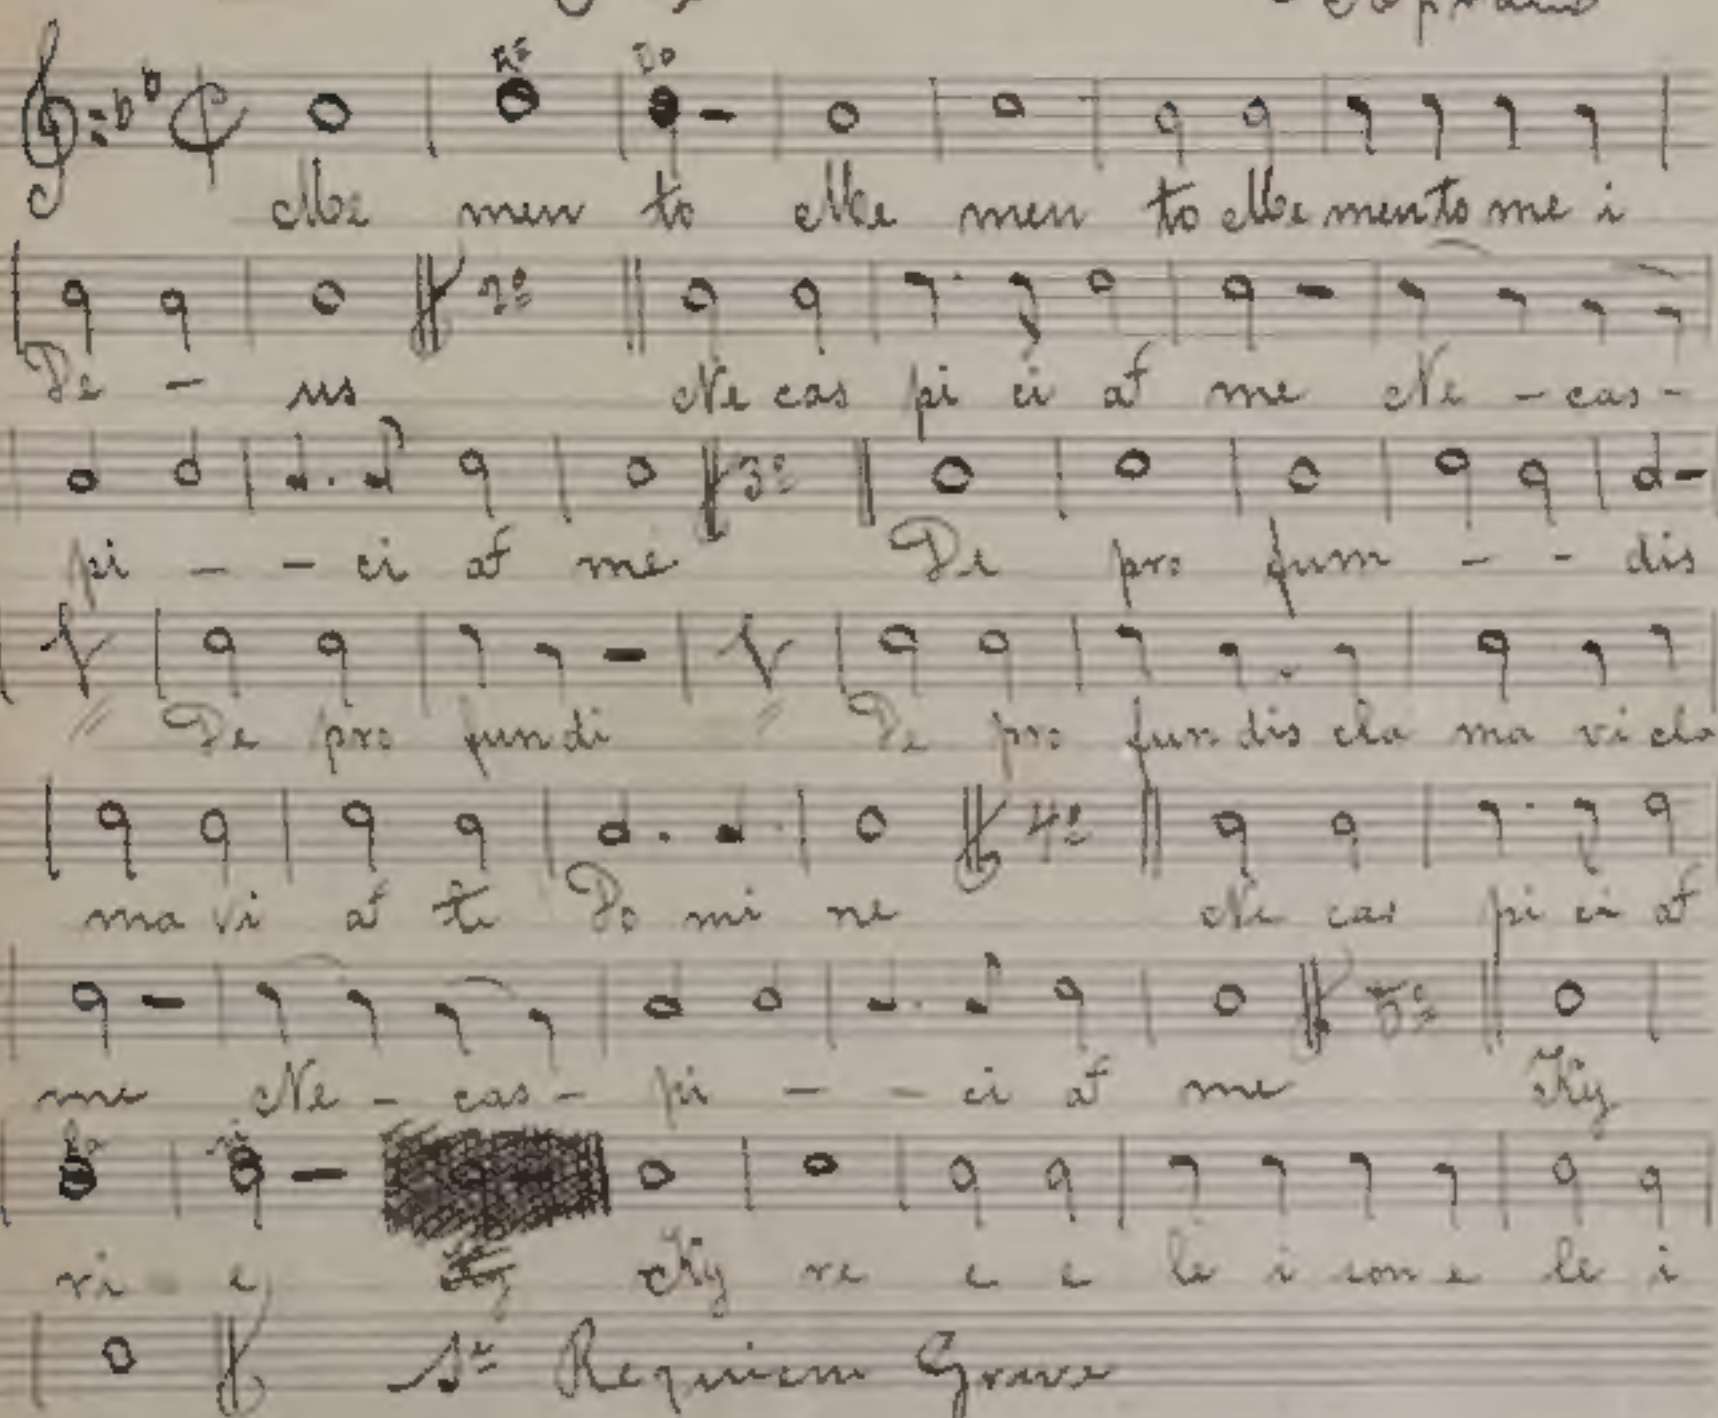 Soprano
Re Do
Me men to Me men to Me mento me i
2º
De - us Ne cas pi ci at me Ne - cas -
3º
pi - - ci at me De pro fum - - dis
" De pro fun di " De pro fun dis cla ma vi cla
4º
ma vi at te Do mi ne Ne cas pi ci at
5º
me Ne - cas - pi - - ci at me Ky
ri e Ky Ky re e e le i son e le i
Se Requiem Grave